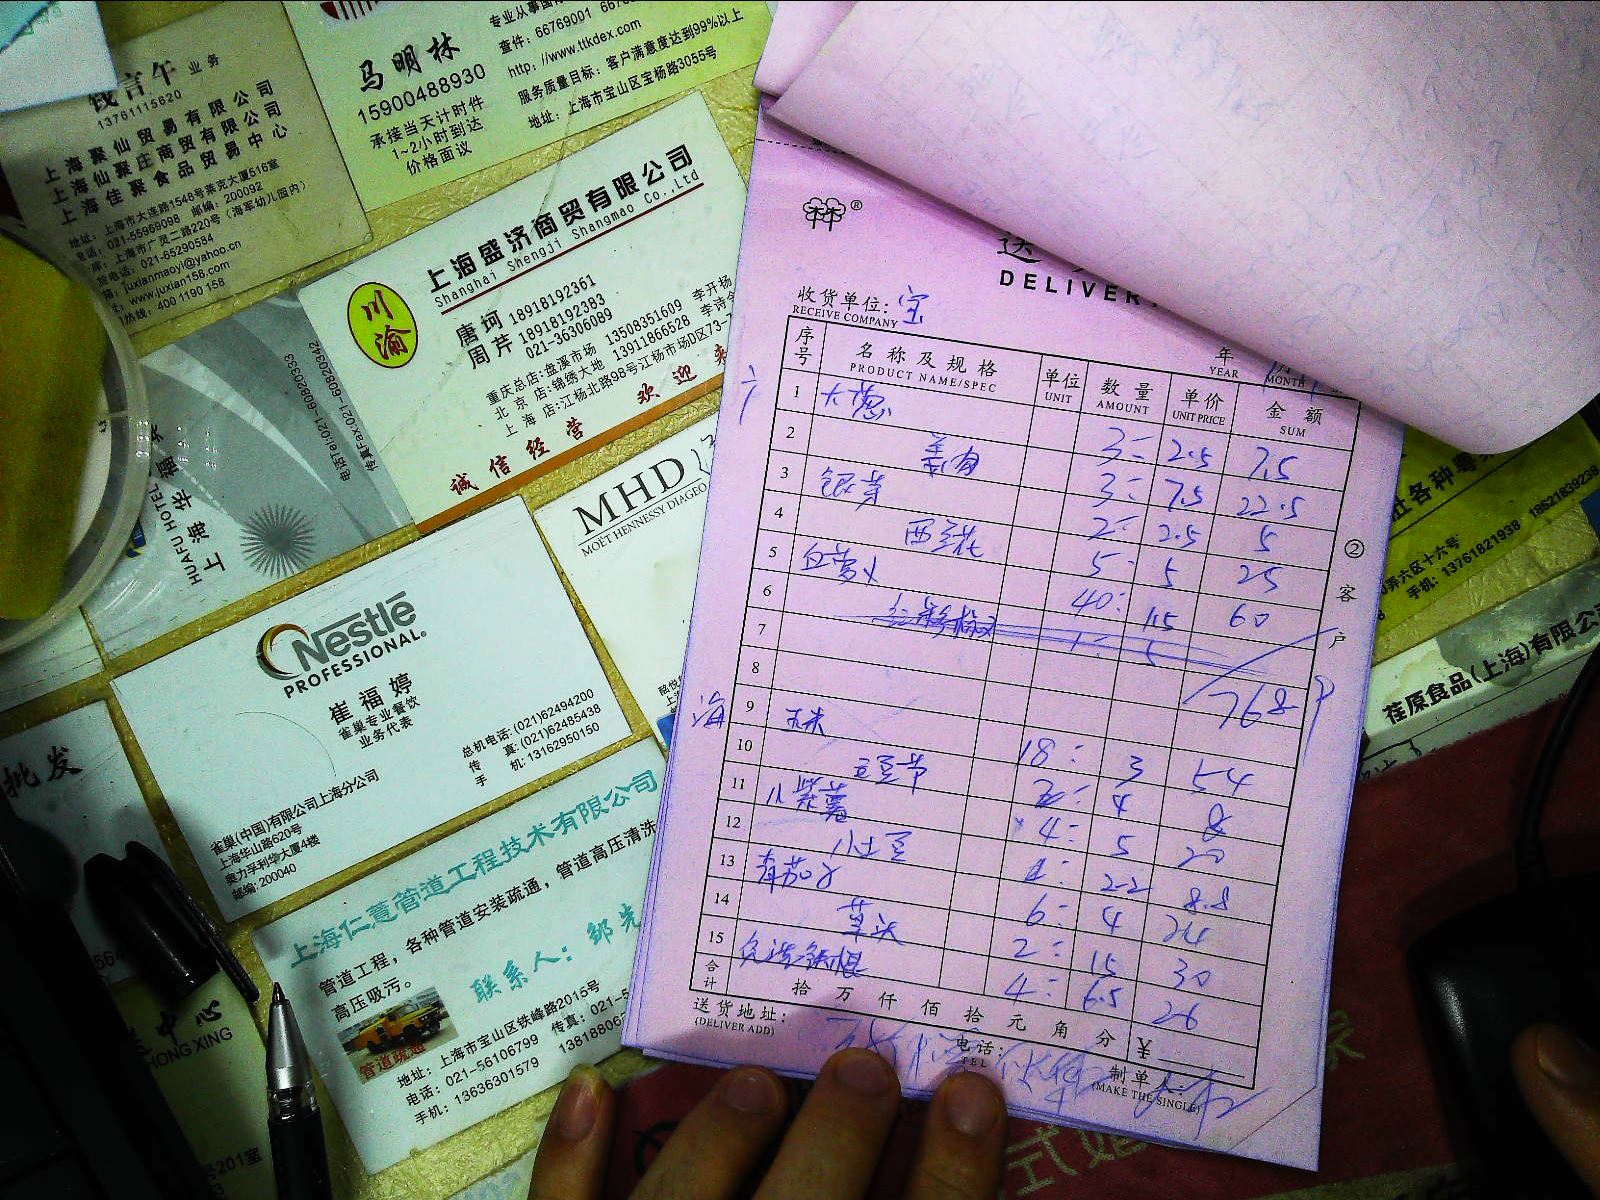 钱言午 业务
13761115620
上海聚仙贸易有限公司
上海仙聚庄商贸有限公司
上海佳聚食品贸易中心
地址：上海市大连路1548号莱克大厦516室
电话：021-55969098 邮编：200092
库：上海市广灵二路220号（海军幼儿园内）
货电话：021-65290584
箱：juxianmaoyi@yahoo.cn
址：www.juxian158.com
热线：400 1190 158
马明林
15900488930
承接当天计时件
1~2小时到达
价格面议
查件：66769001
http：//www.ttkdex.com
服务质量目标：客户满意度达到99%以上
地址：上海市宝山区宝杨路3055号
川渝
上海盛济商贸有限公司
Shanghai Shengji Shangmao Co.,Ltd
唐 珂 18918192361
周 芹 18918192383
021-36306089
重庆总店：盘溪市场 13508351609 李开杨
北 京 店：锦绣大地 13911866528 李诗
上 海 店：江杨北路98号江杨市场D区73-
诚信经营 欢迎
HUAFU HOTEL
上海华
电话Tel:021-60820333
传真Fax:021-60820342
MHD
MOËT HENNESSY DIAGEO
Nestlé
PROFESSIONAL®
崔福婷
雀巢专业餐饮
业务代表
总机电话：(021)62494200
传 真：(021)62485438
手 机：13162950150
雀巢(中国)有限公司上海分公司
上海华山路620号
奥力孚利华大厦4楼
邮编：200040
批发
上海仁慧管道工程技术有限公司
管道工程，各种管道安装疏通，管道高压清洗
高压吸污。
联系人：邹先
管道疏通
地址：上海市宝山区铁峰路2015号
电话：021-56106799 传真：021-5
手机：13636301579
中心
HONG XING
号201室
送
DELIVER
收货单位：宝
RECEIVE COMPANY
年 月
YEAR MONTH
序号 名称及规格 单位 数量 单价 金额
PRODUCT NAME/SPEC UNIT AMOUNT UNIT PRICE SUM
1 大葱 3= 2.5 7.5
2 3= 7.5 22.5
3 银芽 2= 2.5 5
4 西兰花 5= 5 25
5 40= 1.5 60
6
7 768
8
海
9 玉米 18= 3 54
10 2= 4 8
11 小紫薯 4= 5 20
12 小土豆 4= 2.2 8.8
13 青茄子 6= 4 24
14 草头 2= 15 30
15 4= 6.5 26
合计 拾 万 仟 佰 拾 元 角 分 ¥
送货地址：
(DELIVER ADD)
电话：
TEL
制单人：
(MAKE THE SINGLE)
② 客户
各种粤
弄六区十六号
手机：13761821938 18621839238
荏原食品(上海)有限公